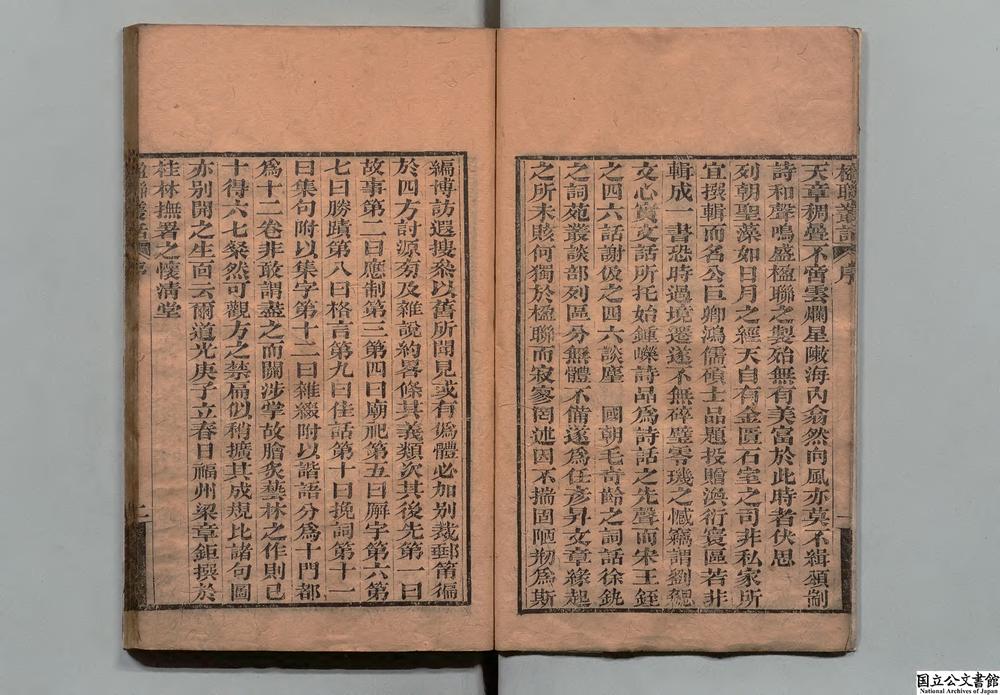 楹聯叢話 序
天章稠疊不啻雲爛星敶海內翕然向風亦莫不緝頌剬
詩和聲鳴盛楹聯之製殆無有美富於此時者伏思
列朝聖藻如日月之經天自有金匱石室之司非私家所
宜撰輯而名公巨卿鴻儒碩士品題投贈渙衍寰區若非
輯成一書恐時過境遷遂不無碎璧零璣之憾竊謂劉勰
文心實文話所托始鍾嶸詩品為詩話之先聲而宋王銍
之四六話謝伋之四六談麈 國朝毛奇齡之詞話徐釚
之詞苑叢談部列區分無體不備遂為任彥昇文章緣起
之所未賅何獨於楹聯而寂寥罔述因不揣固陋剏為斯
一
編博訪遐搜參以舊所聞見或有偽體必加別裁郵筩徧
於四方討源旁及雜說約略條其義類次其後先第一曰
故事第二曰應制第三第四曰廟祀第五曰廨宇第六第
七曰勝蹟第八曰格言第九曰佳話第十曰挽詞第十一
曰集句附以集字第十二曰雜綴附以諧語分為十門都
為十二卷非敢謂盡之而關涉掌故膾炙藝林之作則已
十得六七粲然可觀方之禁扁似稍擴其成規比諸句圖
亦別開之生面云爾道光庚子立春日福州梁章鉅撰於
桂林撫署之懷清堂
楹聯叢話 序
二
国立公文書館
National Archives of Japan